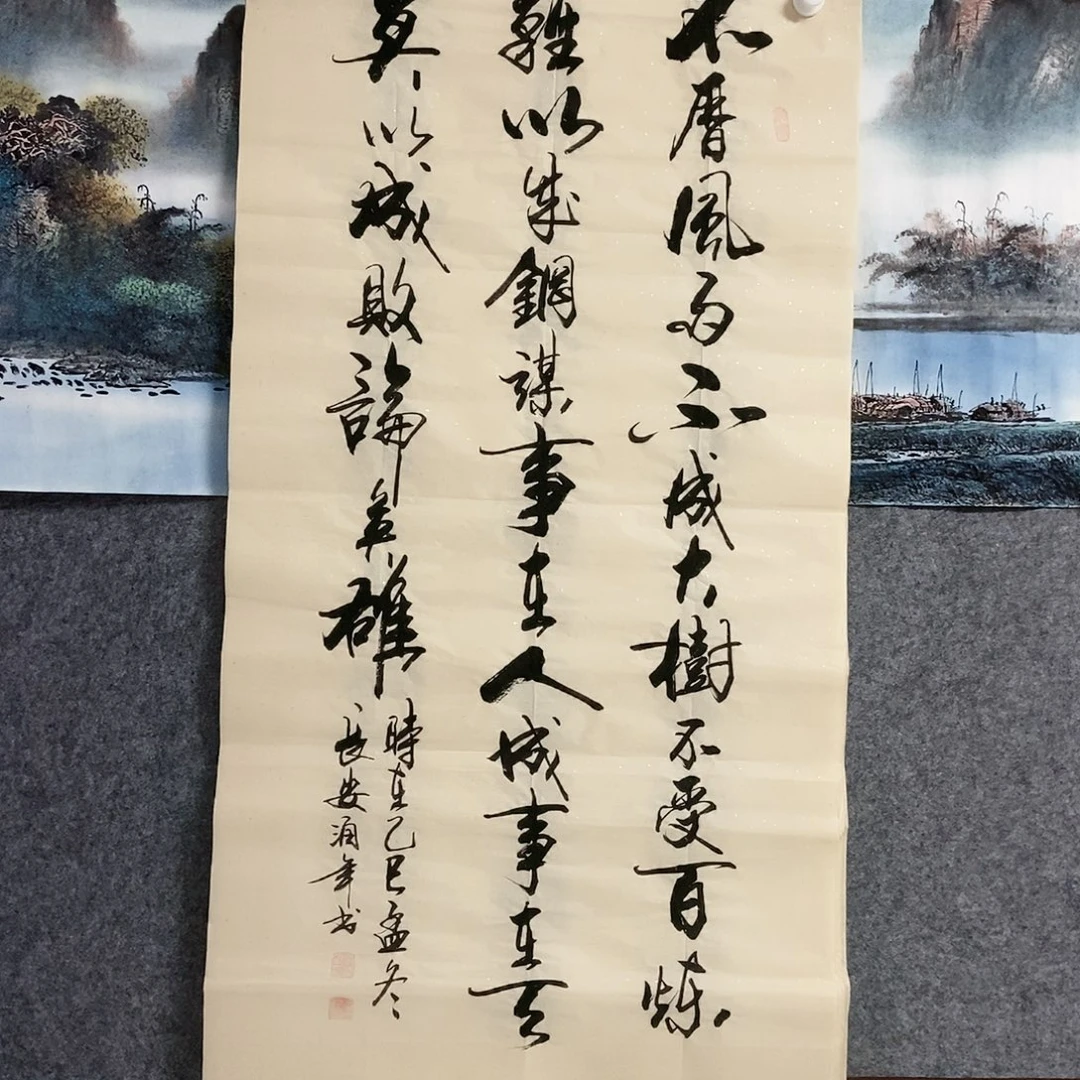 不曆風雨不成大樹不受百煉
難以成鋼謀事在人成事在天
莫以成敗論英雄
時在乙巳孟冬
長安潤年书